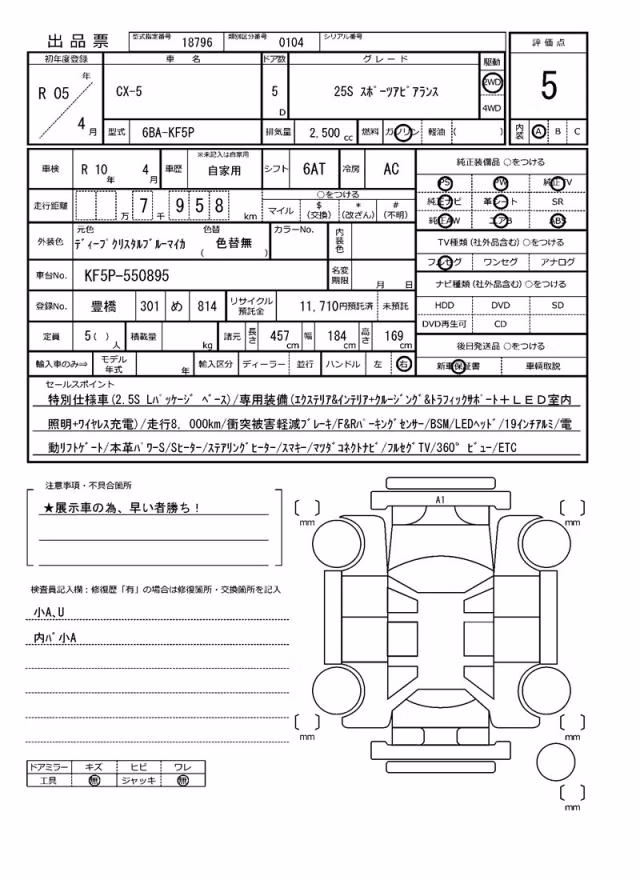 出品票 型式指定番号 18796 類別区分番号 0104 シリアル番号
初年度登録 車名 ドア数 グレード 駆動 評価点
R 05 年 4 月 CX-5 5 D 25S スポーツアピアランス 2WD 4WD 5
型式 6BA-KF5P 排気量 2,500 cc 燃料 ガソリン 軽油 ( ) 内装 A B C
車検 R 10 年 4 月 車歴 ※未記入は自家用 自家用 シフト 6AT 冷房 AC 純正装備品 ○をつける
PS PW 純正TV
走行距離 万 7 千 958 km ○をつける マイル $ (交換) * (改ざん) # (不明) 純正ナビ 革シート SR
純正AW エアB ABS
外装色 元色 ディープクリスタルブルーマイカ 色替 ( 色替無 ) カラーNo. 内装色 TV種類 (社外品含む) ○をつける
フルセグ ワンセグ アナログ
車台No. KF5P-550895 名変期限 月 日 ナビ種類 (社外品含む) ○をつける
登録No. 豊橋 301 め 814 リサイクル預託金 11,710円預託済 未預託 HDD DVD SD
DVD再生可 CD
定員 5( ) 人 積載量 kg 諸元 長さ 457 cm 幅 184 cm 高さ 169 cm 後日発送品 ○をつける
輸入車のみ⇒ モデル年式 年 輸入区分 ディーラー 並行 ハンドル 左 右 新車保証書 車輌取説
セールスポイント
特別仕様車(2.5S Lパッケージ ベース)/専用装備(エクステリア&インテリア+クルージング&トラフィックサポート+LED室内
照明+ワイヤレス充電)/走行8,000km/衝突被害軽減ブレーキ/F&Rパーキングセンサー/BSM/LEDヘッド/19インチアルミ/電
動リフトゲート/本革パワーS/Sヒーター/ステアリングヒーター/スマキー/マツダコネクトナビ/フルセグTV/360°ビュー/ETC
注意事項・不具合箇所
★展示車の為、早い者勝ち！
A1
mm mm
検査員記入欄：修復歴「有」の場合は修復箇所・交換箇所を記入
小A、U
内バ小A
mm mm
ドアミラー キズ ヒビ ワレ
工具 無 ジャッキ 無
mm